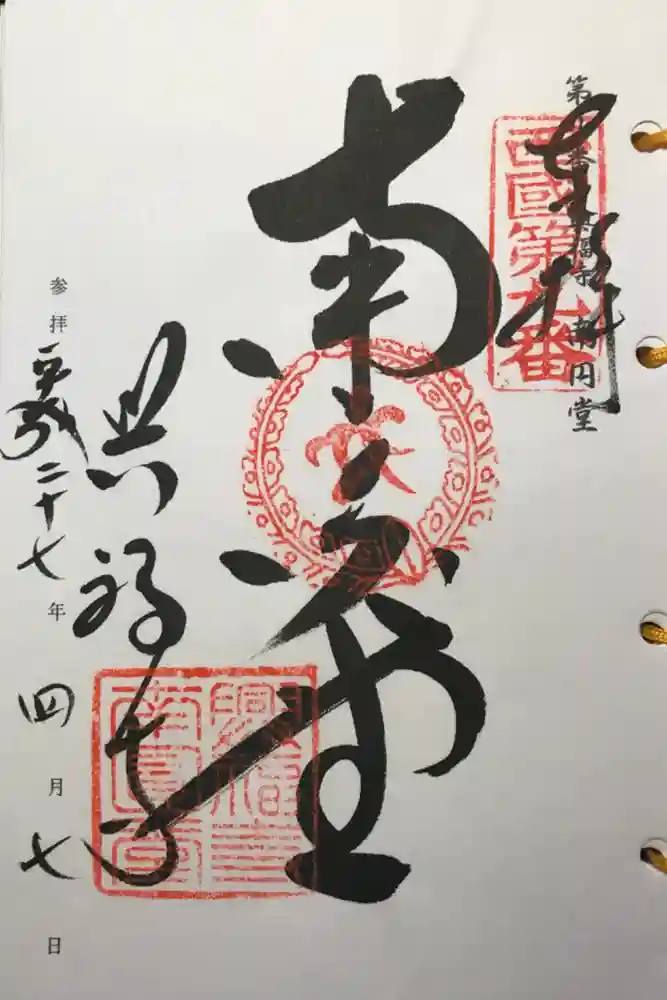 第九番 興福寺 南円堂
奉拝
西國第九番
南円堂
興福寺
興福寺南円堂
参拝 平成二十七年 四月七日